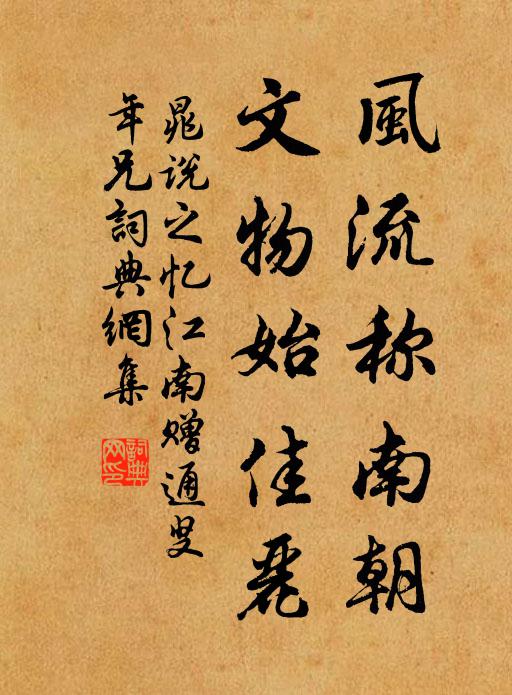 風流称南朝
文物始佳麗
晁说之忆江南赠通叟
年兄詞典網集
詞典
网印